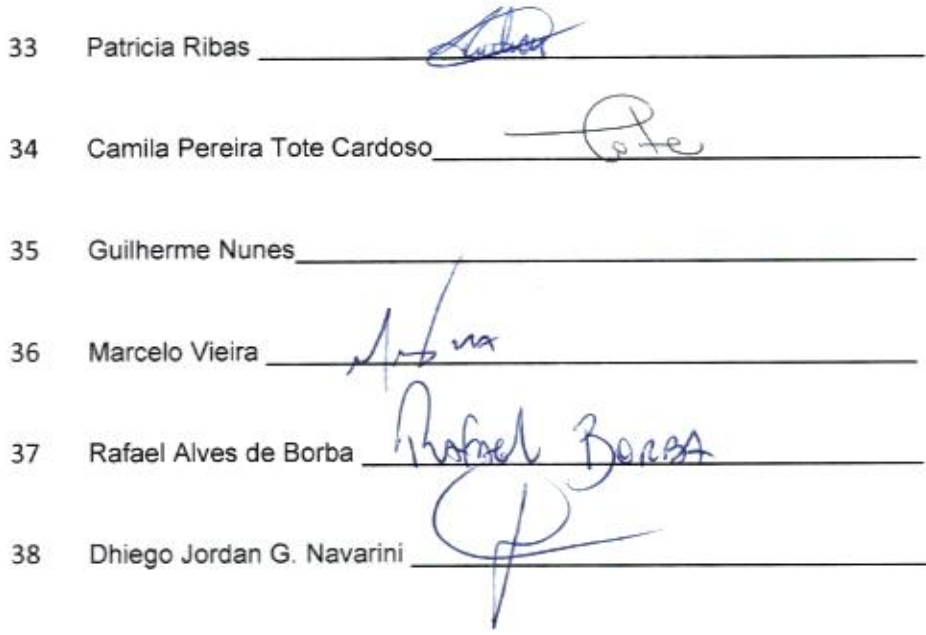 33 Patricia Ribas
34 Camila Pereira Tote Cardoso Tote
35 Guilherme Nunes
36 Marcelo Vieira
37 Rafael Alves de Borba Rafael Borba
38 Dhiego Jordan G. Navarini